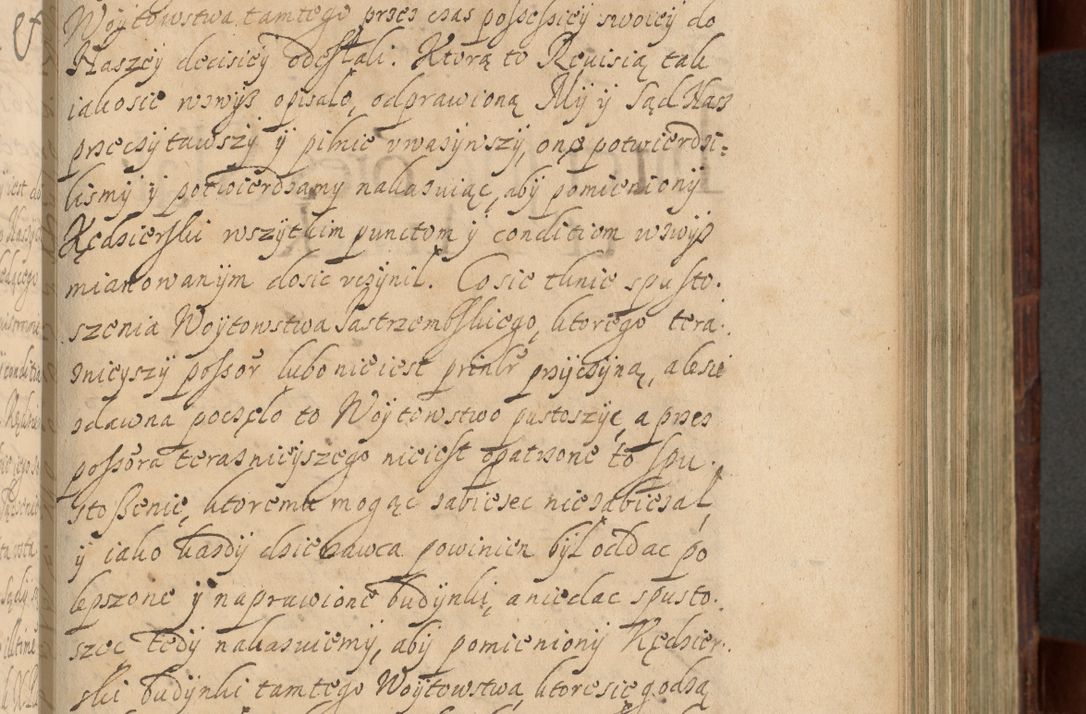 Woÿtowstwa tamtego przez czas possessiey swoiey do
Naszey decisiey odesłali. Którą to Rewisią tak
iakosie wzwyß opisało, odprawioną My y Sąd Nasz
przeczÿtawszÿ ÿ pilnie vwazÿwszÿ, onę potwierdzi-
lismÿ ÿ potwierdzamy nakazuiąc, abÿ pomienionÿ
Kędzierski wszÿtkim punctom ÿ conditiom wzwÿß
mianowanÿm dosic vczÿnił. Co sie tknie spusto-
szenia Woÿtowstwa Jastrzembskiego, ktorego tera-
znieyszÿ possor lubo nie iest prinlr przÿczÿną, ale sie
zdawna poczęło to Woÿtowstwo pustoszÿć, a przez
possora teraznieÿszego nie iest opatrzone to spu-
stoßenie, ktoremu mogąc zabiezec nie zabiezał,
ÿ iako kazdÿ dzierzawca powinien bÿł oddac po
lepszone ÿ naprawione budÿnki, a niedac spusto-
szec tedÿ nakazuiemÿ, abÿ pomienionÿ Kędzier-
ski budÿnki tamtego Woÿtowstwa, ktore sie godzą